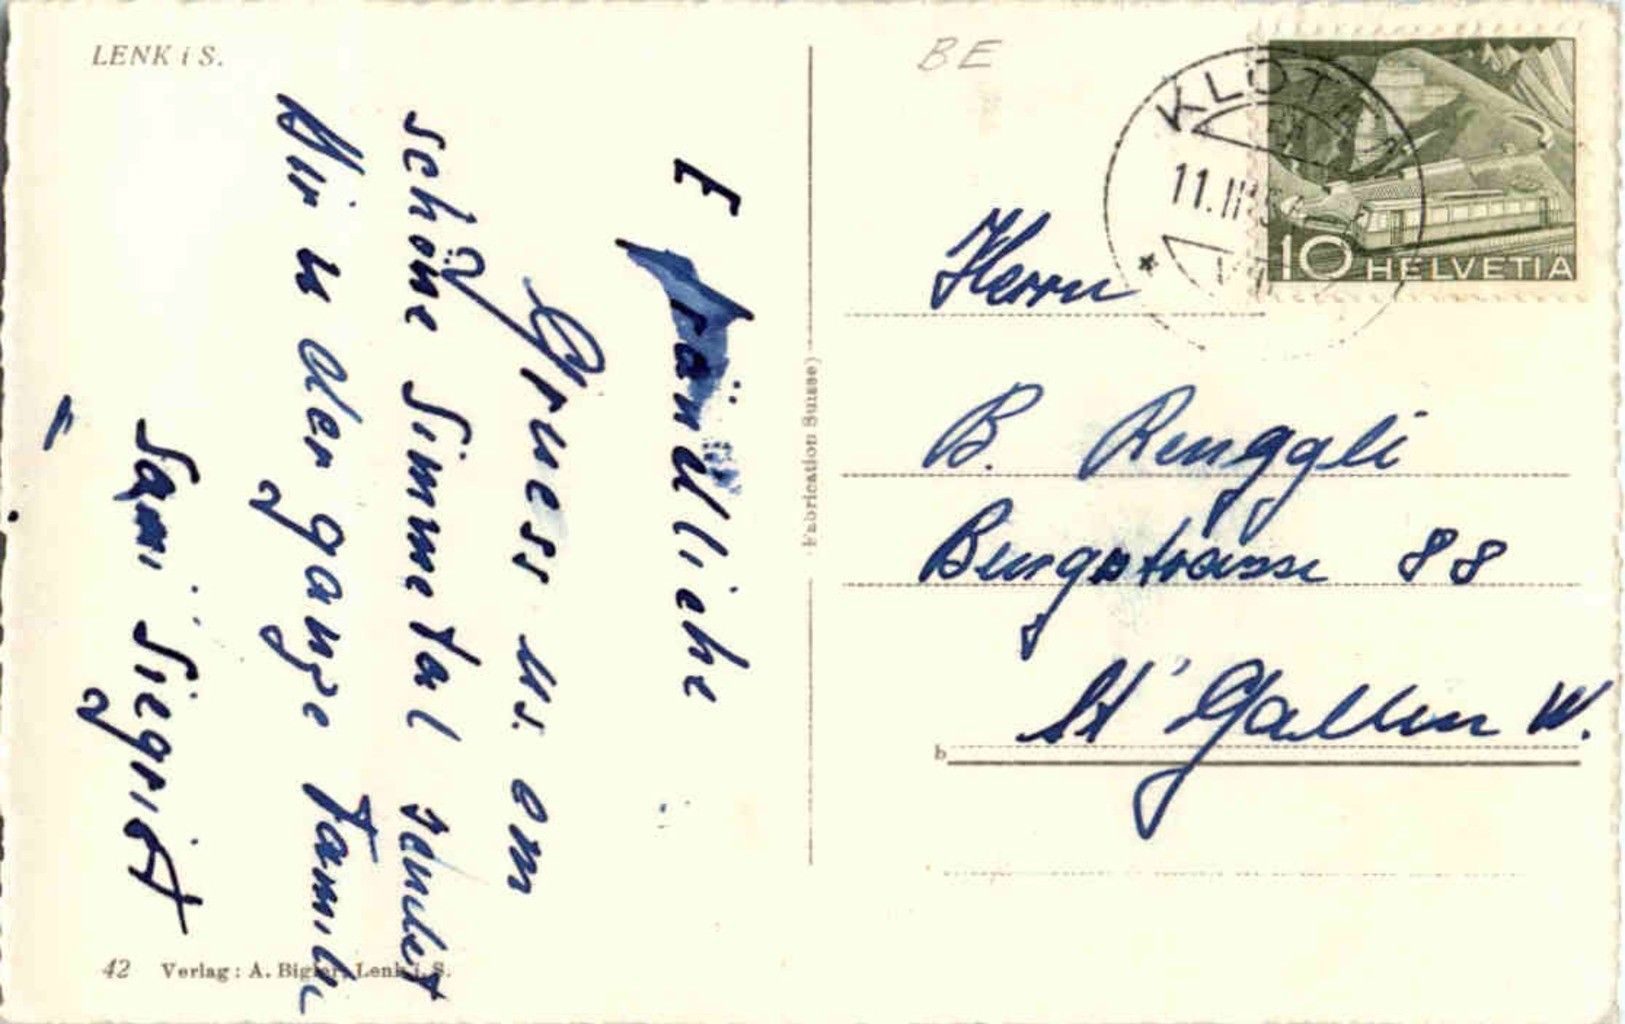 LENK i S.
E fründliche
Gruess us em
schöne Simmetal sändet
Dir u der ganze Famili
Sämi Siegrist
42 Verlag: A. Bigler, Lenk i. S.
Fabrication Suisse)
BE
KLOTEN
11.II
10 HELVETIA
Herrn
B. Renggli
Burgstrasse 88
St' Gallen W.
b